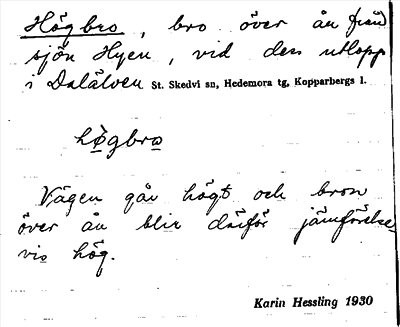 Högbro, bro över ån från
sjön Hyen, vid dess utlopp
i Dalälven St. Skedvi sn, Hedemora tg, Kopparbergs l.
hø̀gbro
Vägen går högt och bron
över ån blir därför jämförelse
vis hög.
Karin Hessling 1930